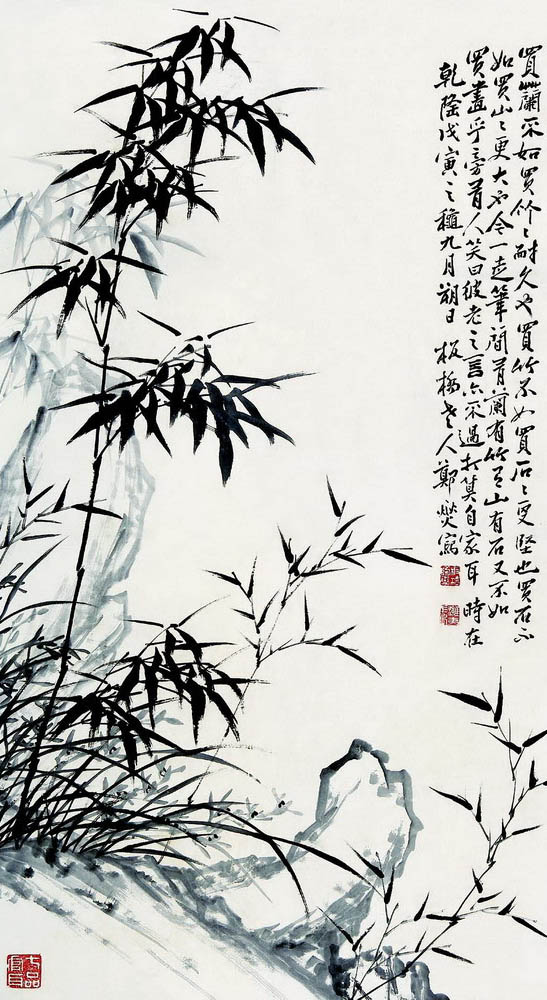 買蘭不如買竹〻耐久也買竹不如買石〻更堅也買石不
如買山〻更大也今一走筆間有蘭有竹有山有石又不如
買畫乎旁有人笑曰彼老之言亦不過打算自家耳 時在
乾隆戊寅之穐九月朔日 板橋老人鄭燮寫
七品官耳